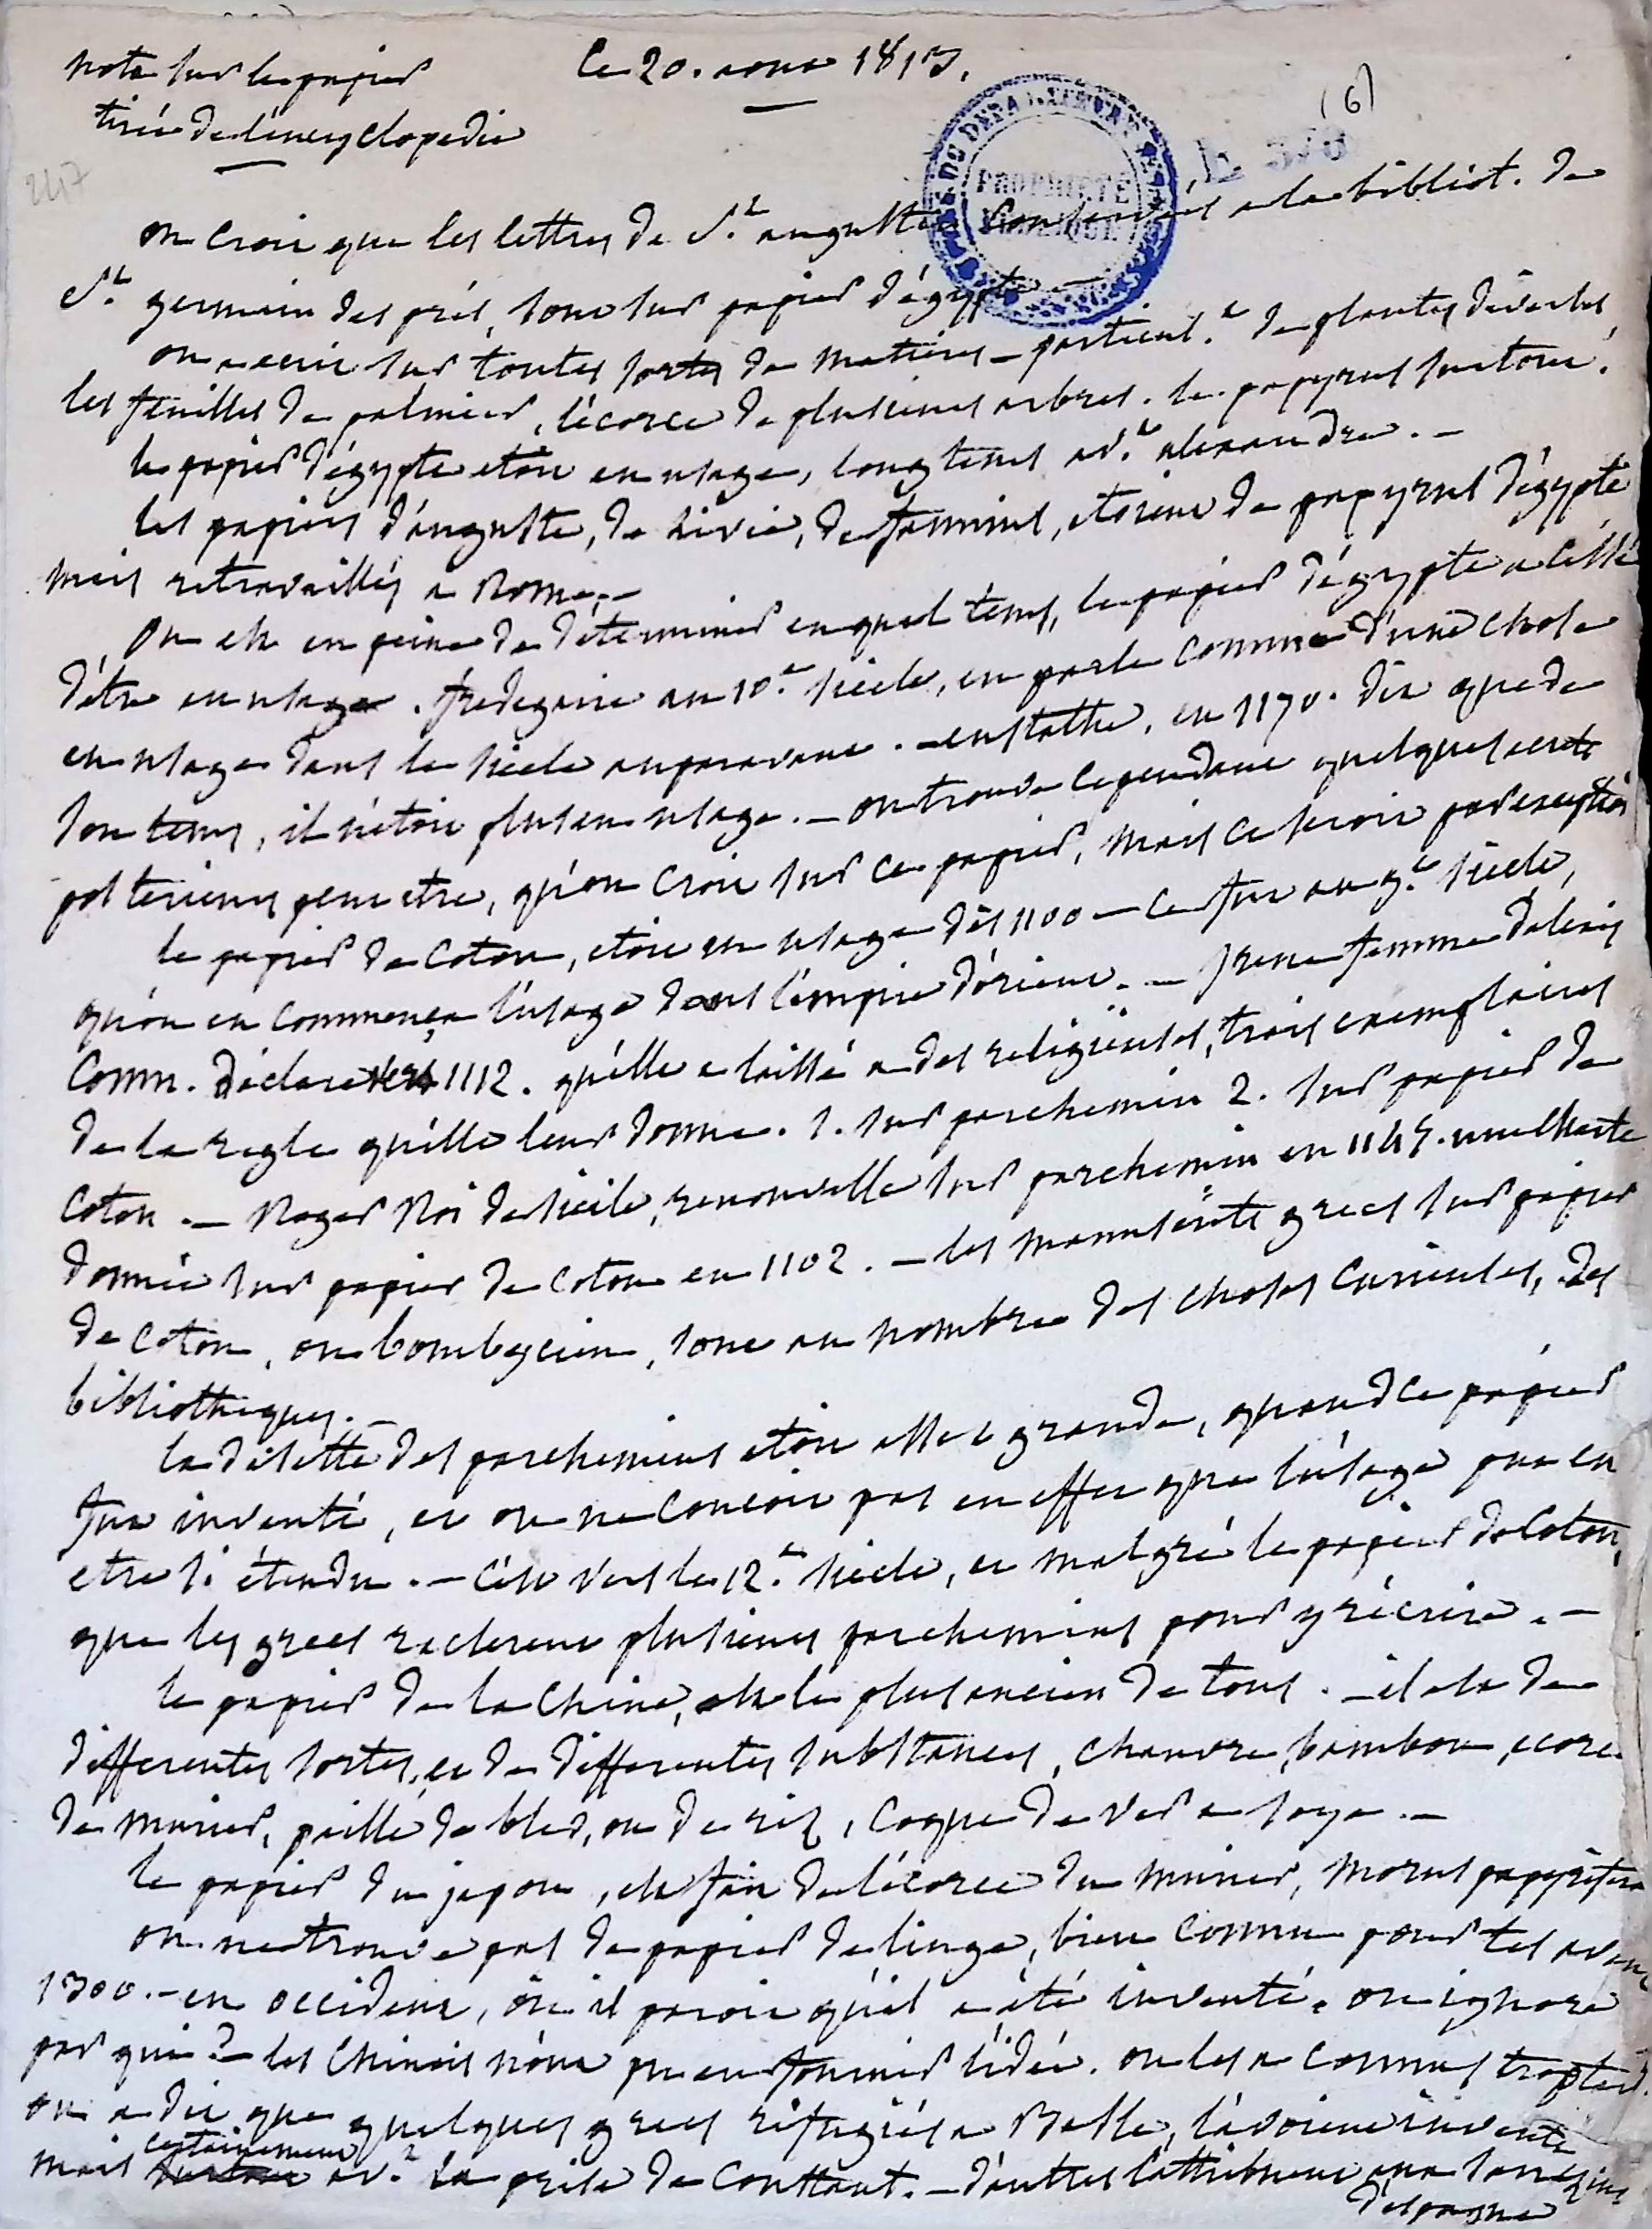 note sur le papier
tirée de l'encyclopedie
Ce 20. aout 1813.
(6)
247
PROPRIETE PUBLIQUE
on croit que les lettres de St. augustin conservées a la bibliot. de
St. germain des prés, sont sur papier d'égypte —
on a ecrit sur toutes sortes de matieres — particul.e de plantes diverses
les feuilles de palmier, l'écorce de plusieurs arbres. le papyrus surtout.
le papier d'égypte etoit en usage, longtems av.t alexandre. —
les papiers d'auguste, de Livie, de fannius, etoient de papyrus d'égypte
mais retravaillés a Rome. —
On est en peine de déterminer en quel tems, le papier d'égypte a cessé
d'être en usage. fredegaire au 10.e siecle, en parle comme d'une chose
en usage dans le siecle auparavant. — eustathe, en 1170. dit que de
son tems, il n'étoit plus en usage. — on trouve cependant quelques ecrits
posterieurs peut etre, qu'on croit sur ce papier, mais ce seroit par exception
le papier de coton, etoit en usage dès 1100 — ce fut au 9.e siecle,
qu'on en commença l'usage dans l'empire d'orient. — Irene femme d'alexis
Comn. déclare vers 1112. qu'elle a laissé a des religieuses, trois exemplaires
de la regle qu'elle leur donne. 1. sur parchemin 2. sur papier de
coton. — Roger Roi de sicile, renouvelle sur parchemin en 1145. une charte
donnée sur papier de coton en 1102. — les manuscrits grecs sur papier
de coton, ou bombycien, sont au nombre des choses curieuses, des
bibliotheques. —
la disette des parchemins etoit assez grande, quand ce papier
fut inventé, et on ne concoit pas en effet que l'usage put en
etre si étendu. — C'est vers le 12.e siecle, et malgré le papier de coton,
que les grecs raclerent plusieurs parchemins pour y récrire. —
le papier de la Chine, est le plus ancien de tous. — il est de
differentes sortes, et de differentes substances, chanvre, bambou, ecorce
de murier, paille de bled, ou de riz, coque de ver a soye. —
le papier du japon, est fait de l'écorce du murier, morus papyrifera
on ne trouve pas de papier de linge, bien connu pour tel avant
1300. — en occident, où il paroit qu'il a été inventé. on ignore
par qui? — les Chinois n'ont pu en fournir l'idée. on les a connus trop tard.
on a dit que quelques grecs réfugiés a Basle, l'avoient inventé
mais certainement av.t la prise de Constant. — d'autres l'attribuent aux sarrazins
d'espagne